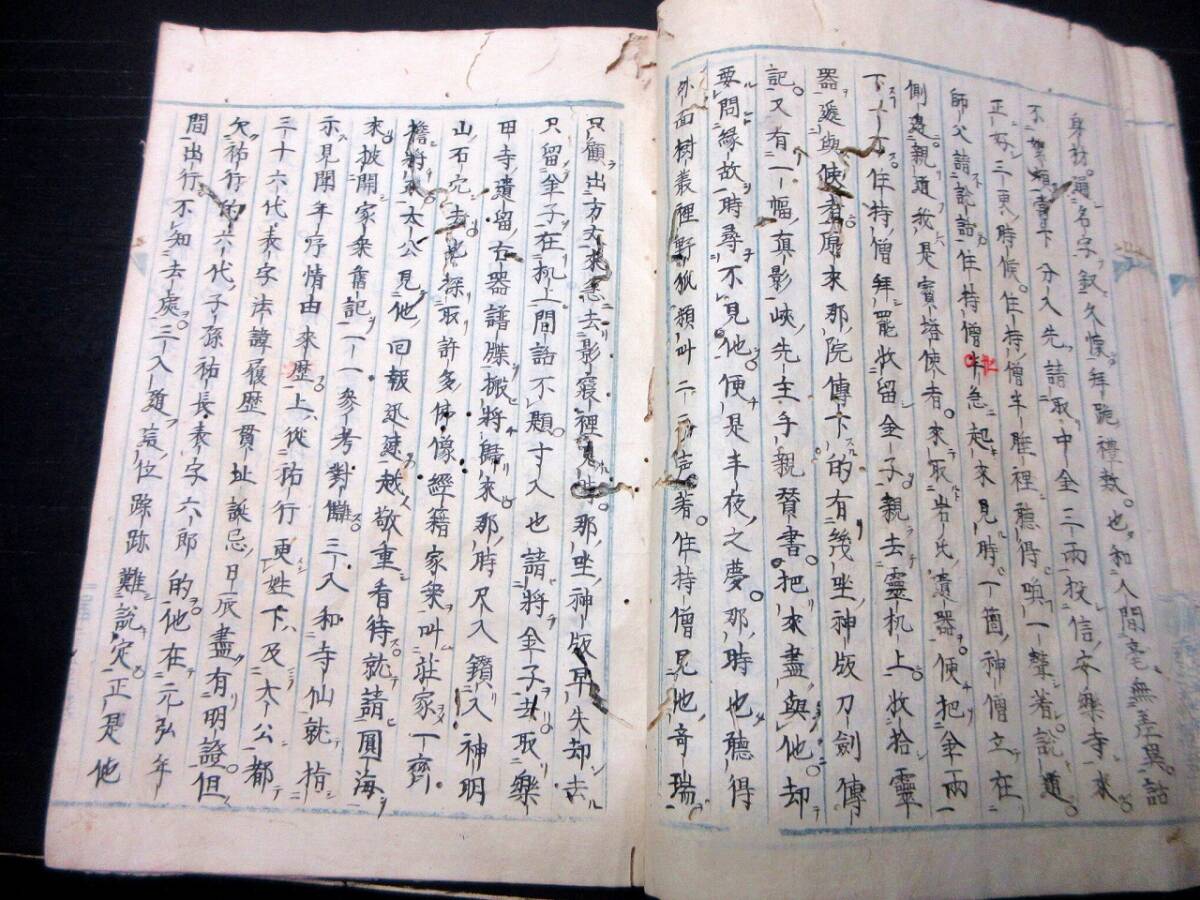 身材。通名字叙久懐拜跪禮数。也和人間毫無差異。話
不繁煩當下分入先請取中金三兩投信安樂寺来
正在三更時候住持僧半睡裡聽得喚一聲著説道
師父請説話住持僧半急起来見時一箇神僧立在
側邊親道我是寶塔使者来取岩氏遺器便把金兩
下了住持僧拜罷收留金子親去靈机上收拾靈
器遞與使者原来那院傳下的有幾坐神版刀劍傳
記又有一幅真影峽先主手親賛書。把来盡與他。却
要問縁故時尋不見他。便是半夜之夢。那時也聽得
外面樹叢裡野狐頻叫二三声著住持僧見他奇瑞
只顧出方丈来急去影窺裡那坐神版早失却去
只留金子在机上間話不題。寸入也請將金子去取樂
田寺遺留古器譜牒搬將歸来那時尺入鑽入神明
山石穴去探取許多佛像經籍家乗叫莊家一齊
擔將来太公見他回報迅速越敬重看待就請圓海
来披開家乗舊記一一參考對讎三入和寺仙就指
示見聞年序情由来歴上從祐行更姓下及太公都
三十六代表字法諱履歴貫址誕忌日辰盡有明證但
欠祐行的六代子孫祐長表字六郎的他在元弘年
間出行不知去處三入道這位蹤跡難説定正是他